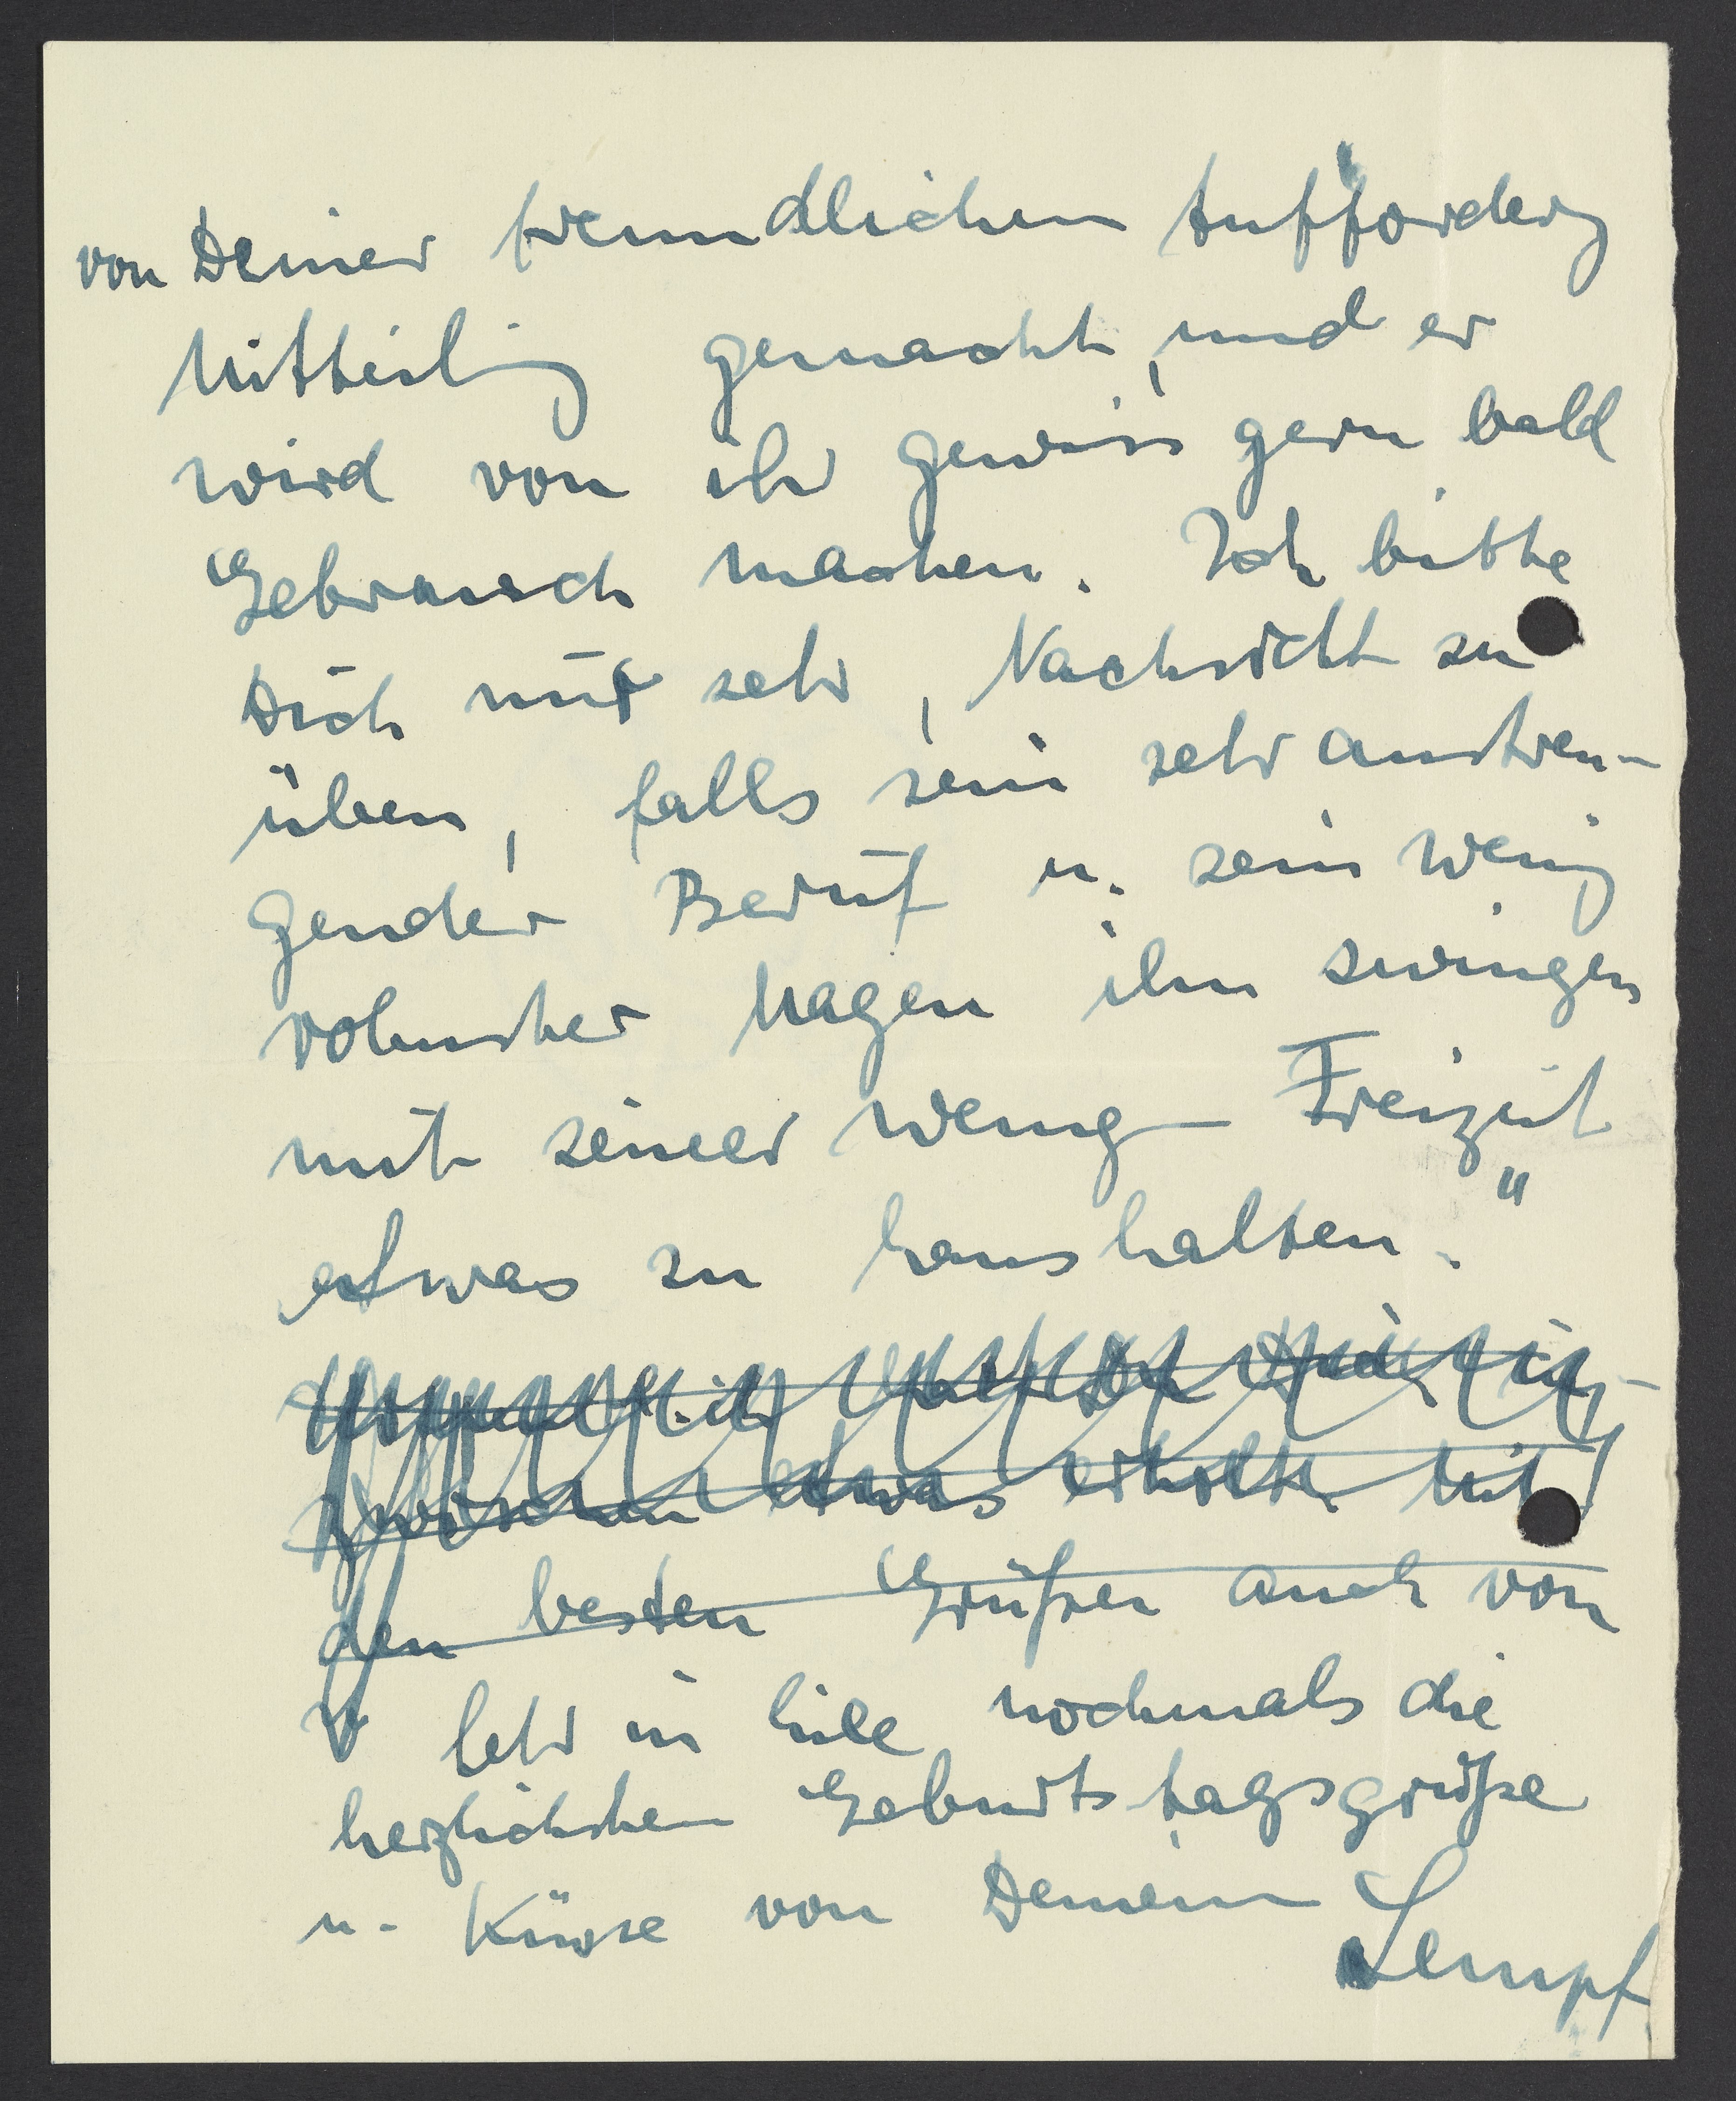 von Deiner freundlichen Aufforderg
Mitteilung gemacht, und er
wird von ihr gewiss gern bald
Gebrauch machen. Ich bitte
Dich nur sehr, Nachsicht zu
üben, falls sein sehr anstren-
gender Beruf u. sein wenig
robuster Magen ihn zwingen
mit seiner wenig Freizeit
etwas zu haushalten."
Hoffentlich hast Du Dich in-
zwischen etwas erholt. Mit
den besten Grüßen auch von
sehr in Eile nochmals die
herzlichsten Geburtstagsgrüße
u. Küsse von Deinem
Sempf